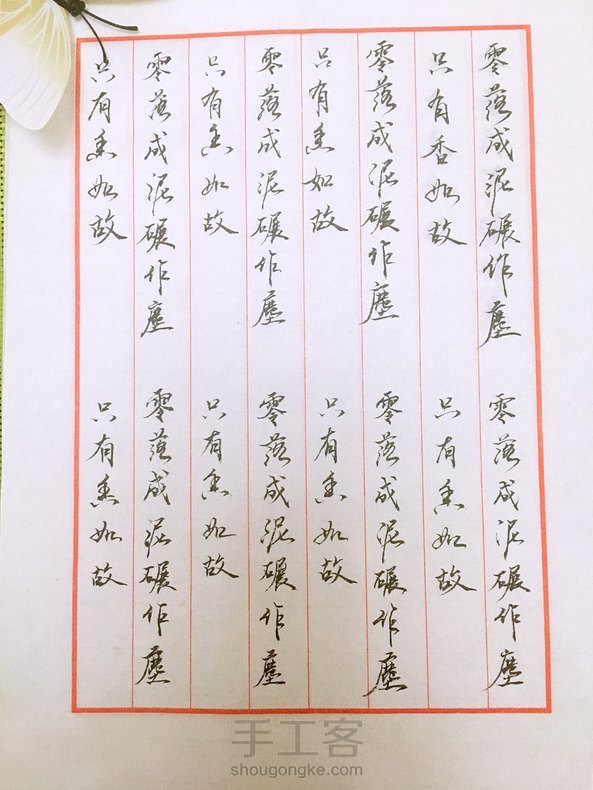 零落成泥碾作塵
只有香如故
零落成泥碾作塵
只有香如故
零落成泥碾作塵
只有香如故
零落成泥碾作塵
只有香如故
零落成泥碾作塵
只有香如故
零落成泥碾作塵
只有香如故
零落成泥碾作塵
只有香如故
零落成泥碾作塵
只有香如故
手工客
shougongke.com